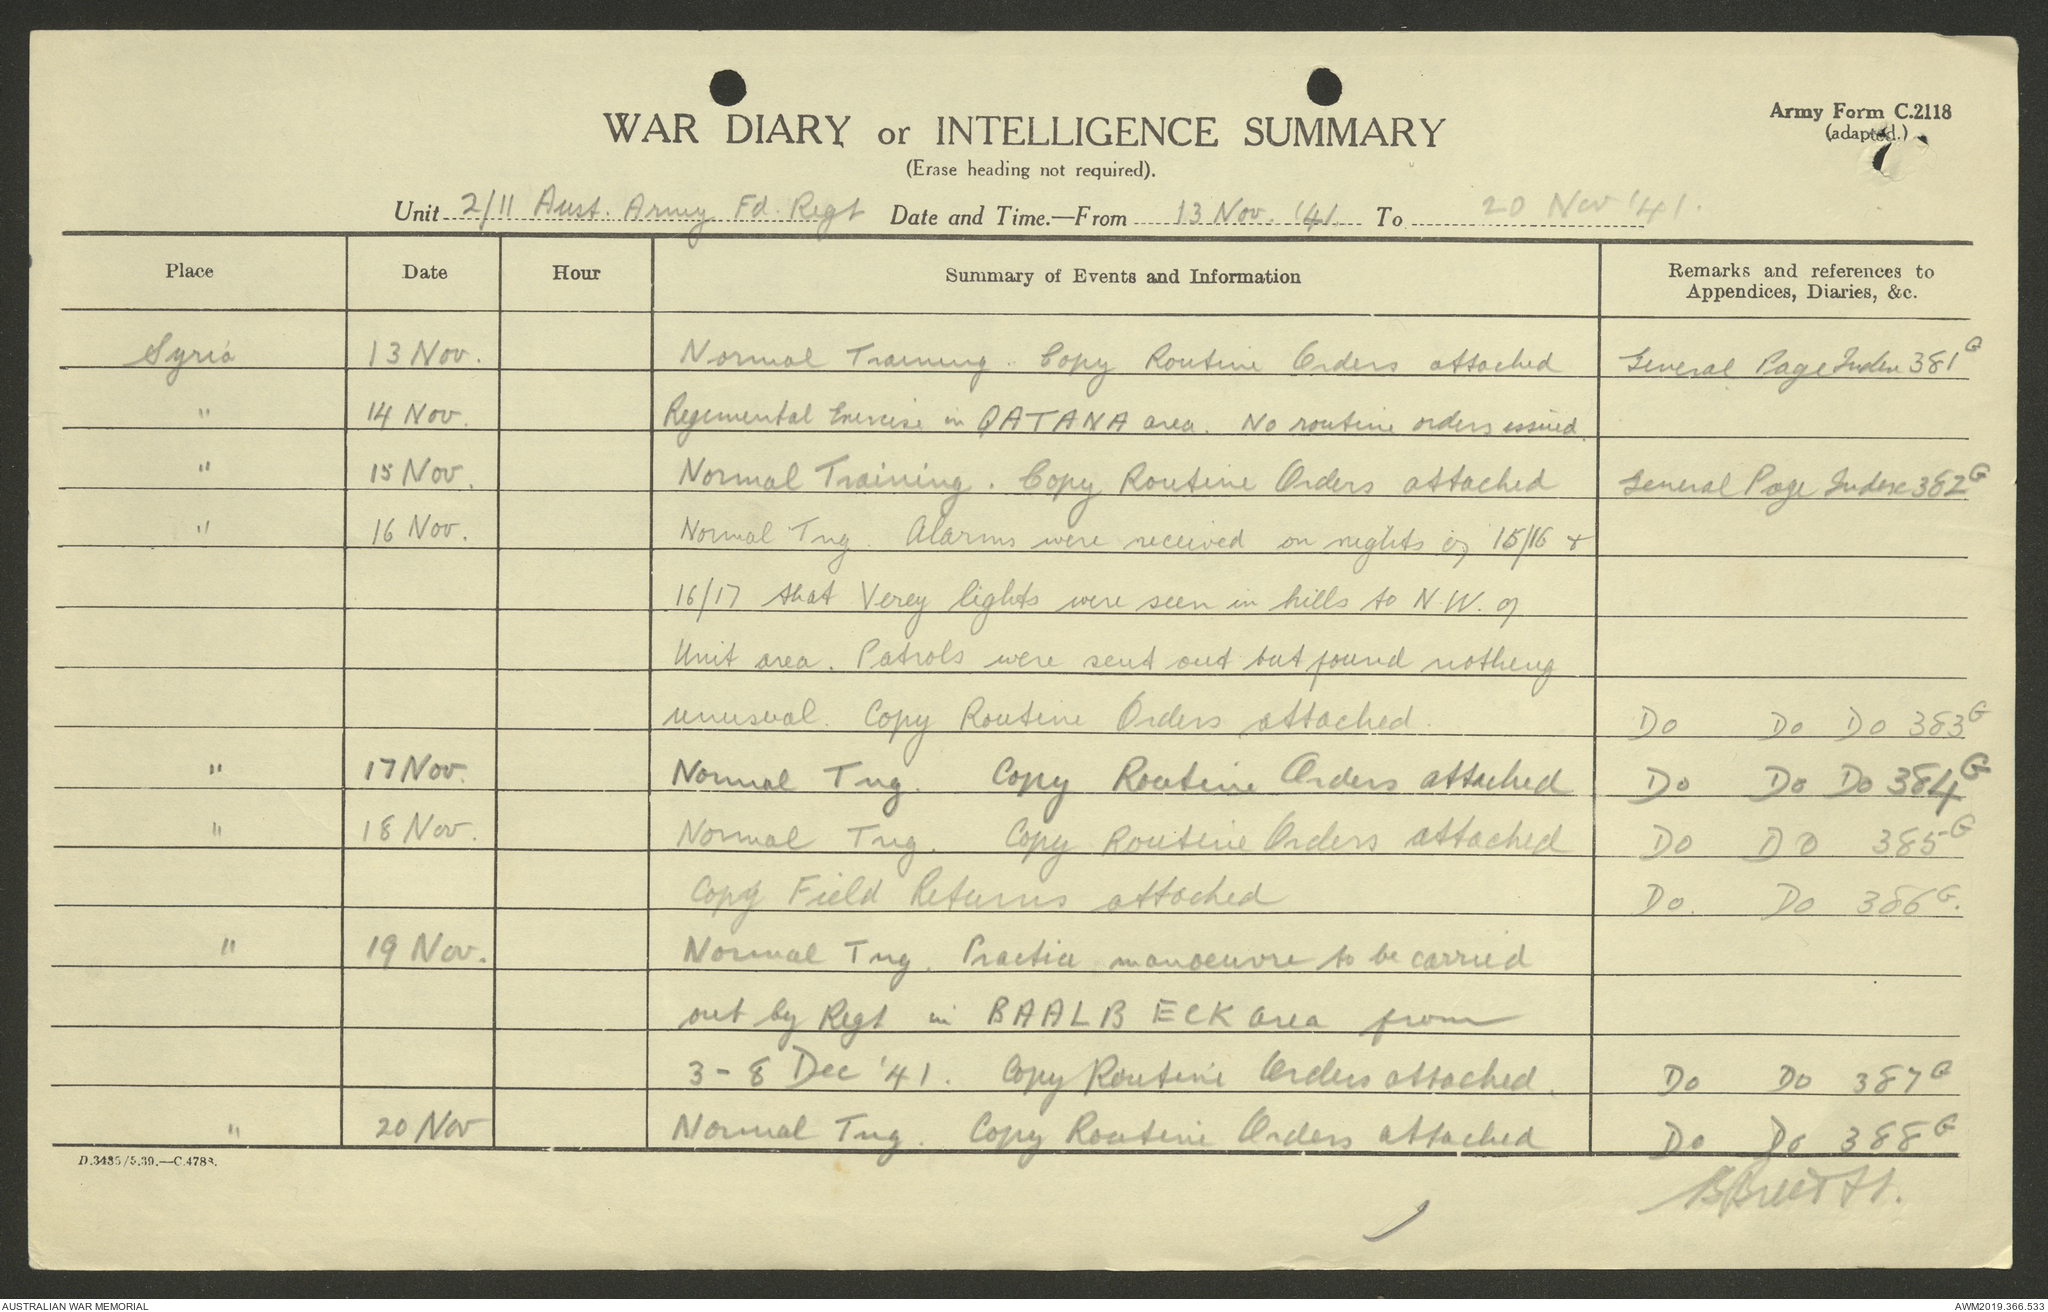 WAR DIARY or INTELLIGENCE SUMMARY
(Erase heading not required).
Army Form C.2118
(adapted.)
7
Unit 2/11 Aust. Army Fd. Regt Date and Time.—From 13 Nov. '41. To 20 Nov '41.
Place Date Hour Summary of Events and Information Remarks and references to
Appendices, Diaries, &c.
Syria 13 Nov. Normal Training. Copy Routine Orders attached General Page Index 381 G
" 14 Nov. Regimental Exercise in QATANA area. No routine orders issued.
" 15 Nov. Normal Training. Copy Routine Orders attached General Page Index 382 G
" 16 Nov. Normal Tng. Alarms were received on nights of 15/16 &
16/17 that Verey lights were seen in hills to N.W. of
Unit area. Patrols were sent out but found nothing
unusual. Copy Routine Orders attached. Do Do Do 383 G
" 17 Nov. Normal Tng. Copy Routine Orders attached Do Do Do 384 G
" 18 Nov. Normal Tng. Copy Routine Orders attached Do Do 385 G
Copy Field Returns attached Do. Do 386 G.
" 19 Nov. Normal Tng. Practice manoeuvre to be carried
out by Regt in BAALBECK area from
3 - 8 Dec '41. Copy Routine Orders attached. Do Do 387 G
" 20 Nov Normal Tng. Copy Routine Orders attached Do Do 388 G
D.3435/5.39.—C.4783.
Lt.
AUSTRALIAN WAR MEMORIAL
AWM2019.366.533